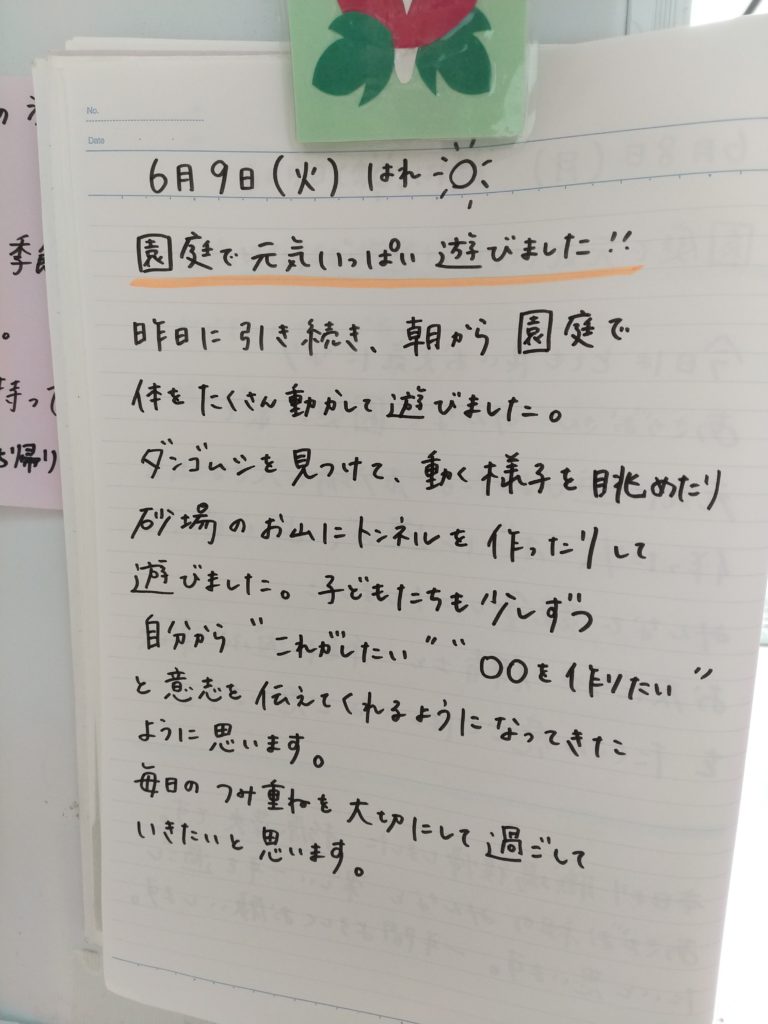 の
季節
。
持って
お帰り
No.
Date
6月9日(火) はれ
園庭で元気いっぱい遊びました!!
昨日に引き続き、朝から園庭で
体をたくさん動かして遊びました。
ダンゴムシを見つけて、動く様子を眺めたり
砂場のお山にトンネルを作ったりして
遊びました。子どもたちも少しずつ
自分から"これがしたい""○○を作りたい"
と意志を伝えてくれるようになってきた
ように思います。
毎日のつみ重ねを大切にして過ごして
いきたいと思います。